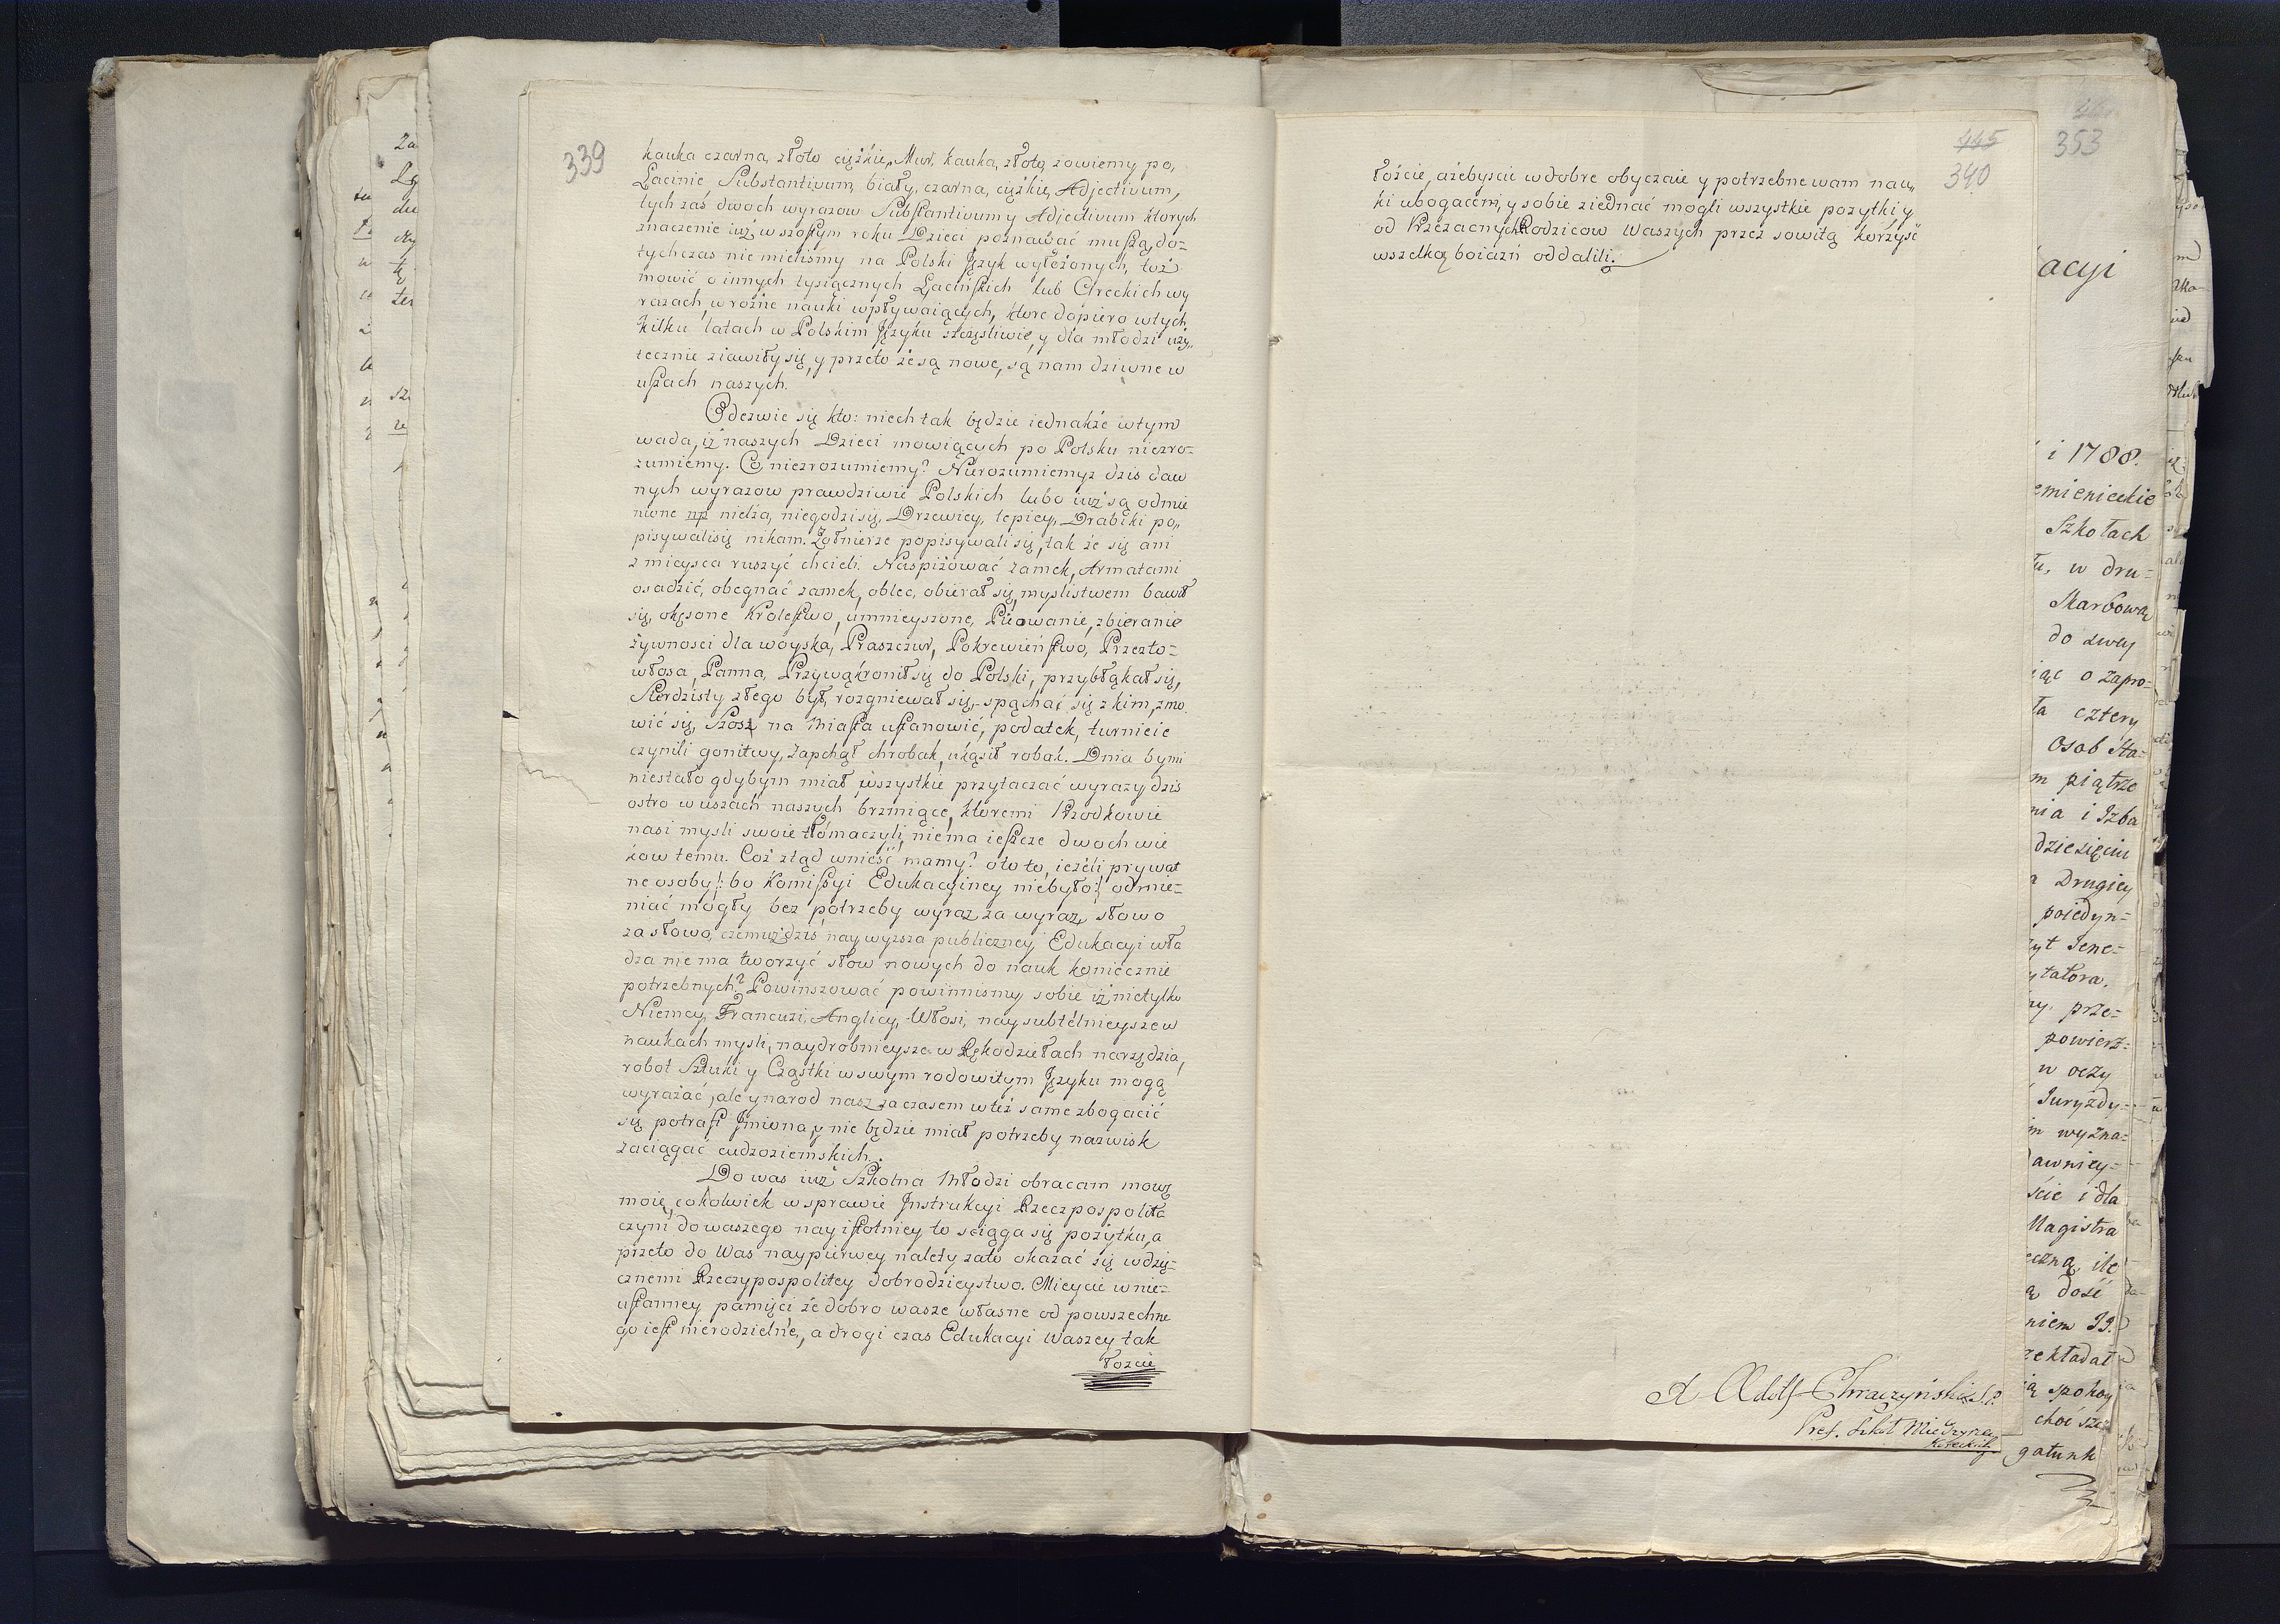 339
kauka czarna, złoto ciężkie, Mur, kauka, złoto, zowiemy po„
Łacinie Substantivum, biały, czarna, ciężkie, Adjectivum,
tych zaś dwoch wyrazow Substantivum y Adjectivum ktorych
znaczenie iuż w szostym roku Dzieci poznawać muszą, do=
tychczas nie mielismy na Polski Język wyłożonych, toż
mowić o innych tysiącznych Łacińskich lub Greckich wy
razach, w rożne nauki wpływaiących, ktore dopiero w tych
kilku latach w Polskim Języku szczęsliwie, y dla młodzi uży„
tecznie ziawiły się, y przeto że są nowe, są nam dziwne w
uszach naszych.
Odezwie się kto: niech tak będzie iednakże w tym
wada, iż naszych Dzieci mowiących po Polsku niezro=
zumiemy. Co niezrozumiemy? Nierozumiemyż dzis daw
nych wyrazow prawdziwie Polskich lubo iuż są odmie
nione np nielza, niegodzi się, Drzewiey, lepiey, Drabiki po„
pisywali się nikam. Żołnierze popisywali się, tak że się ani
z mieysca ruszyć chcieli. Naspiżować zamek, Armatami
osadzić, obegnać zamek, oblec, obierał się, myslistwem bawił
się, okęsone Krolestwo, umnieyszone, Picowanie, zbieranie
żywnosci dla woyska, Praszczur, Pokrewieństwo, Przezto=
włosa, Panna, Przywąkronił się do Polski, przybłąkał się,
Sierdzisty złego był, rozgniewał się, spąchać się z kim, zmo
wić się, Szosz na Miasta ustanowić, podatek, turnieie
czynili gonitwy, Zapchął chrobak, ukąsił robak. Dnia by mi
niestało gdybym miał wszystkie przytaczać wyrazy dzis
ostro w uszach naszych brzmiące, ktoremi Przodkowie
nasi mysli swoie tłómaczyli, niema ieszcze dwoch wie
kow temu. Coż ztąd wnieść mamy? oto to, ieżeli prywat
ne osoby /: bo Komissyi Edukacyiney niebyło :/ odmie=
niać mogły bez potrzeby wyraz za wyraz, słowo
za słowo, czemuż dzis naywyzsza publiczney Edukacyi wła
dza nie ma tworzyć słow nowych do nauk koniecznie
potrzebnych? Powinszować powinnismy sobie iż nietylko
Niemcy, Francuzi, Anglicy, Włosi, naysubtelnieysze w
naukach mysli, naydrobnieysze w Rękodziełach narzędzia,
robot Sztuki y Cząstki w swym rodowitym Języku mogą
wyrażać, ale y narod nasz za czasem w też same zbogacić
się potrafi Jmiona, y nie będzie miał potrzeby nazwisk
zaciągać cudzoziemskich.
Do was iuż Szkolna Młodzi obracam mowę
moię, cokolwiek w sprawie Jnstrukcyi Rzeczpospolita
czyni do waszego nayistotniey to sciąga się pożytku, a
przeto do Was naypierwey należy zato okazać się wdzię=
cznemi Rzeczypospolitey dobrodzieystwo. Mieycie w nie=
ustanney pamięci że dobro wasze własne od powszechne
go iest nierodzielne, a drogi czas Edukacyi Waszey tak
łożcie
445
340
łożcie, ażebyscie w dobre obyczaie y potrzebne wam nau„
ki ubogaceni, y sobie ziednać mogli wszystkie pozytki, y
od Przezacnych Rodzicow Waszych przez sowitą korzyść
wszelką boiaźń oddalili.
A Adolf Chraczyński S.P.
Pref. Szkoł Międzyrzec
Koreckich
353
acyi
i 1788.
emienieckie
Szkołach
łu, w dru=
Skarbową
do dwey
iąc o Zapro=
ła cztery
Osob Sta=
m piątrze
nia i Izba
dziesięciu
a Drugiey
poiedyn=
yt Jene=
ytatora.
ny prze=
powierz=
w oczy
Juryzdy=
m wyzna=
awniey=
ście i dla
Magistra
eczną, ile
ą dość
niem JJ.
zekładał
ią spokoy
choć szcz
gatunk